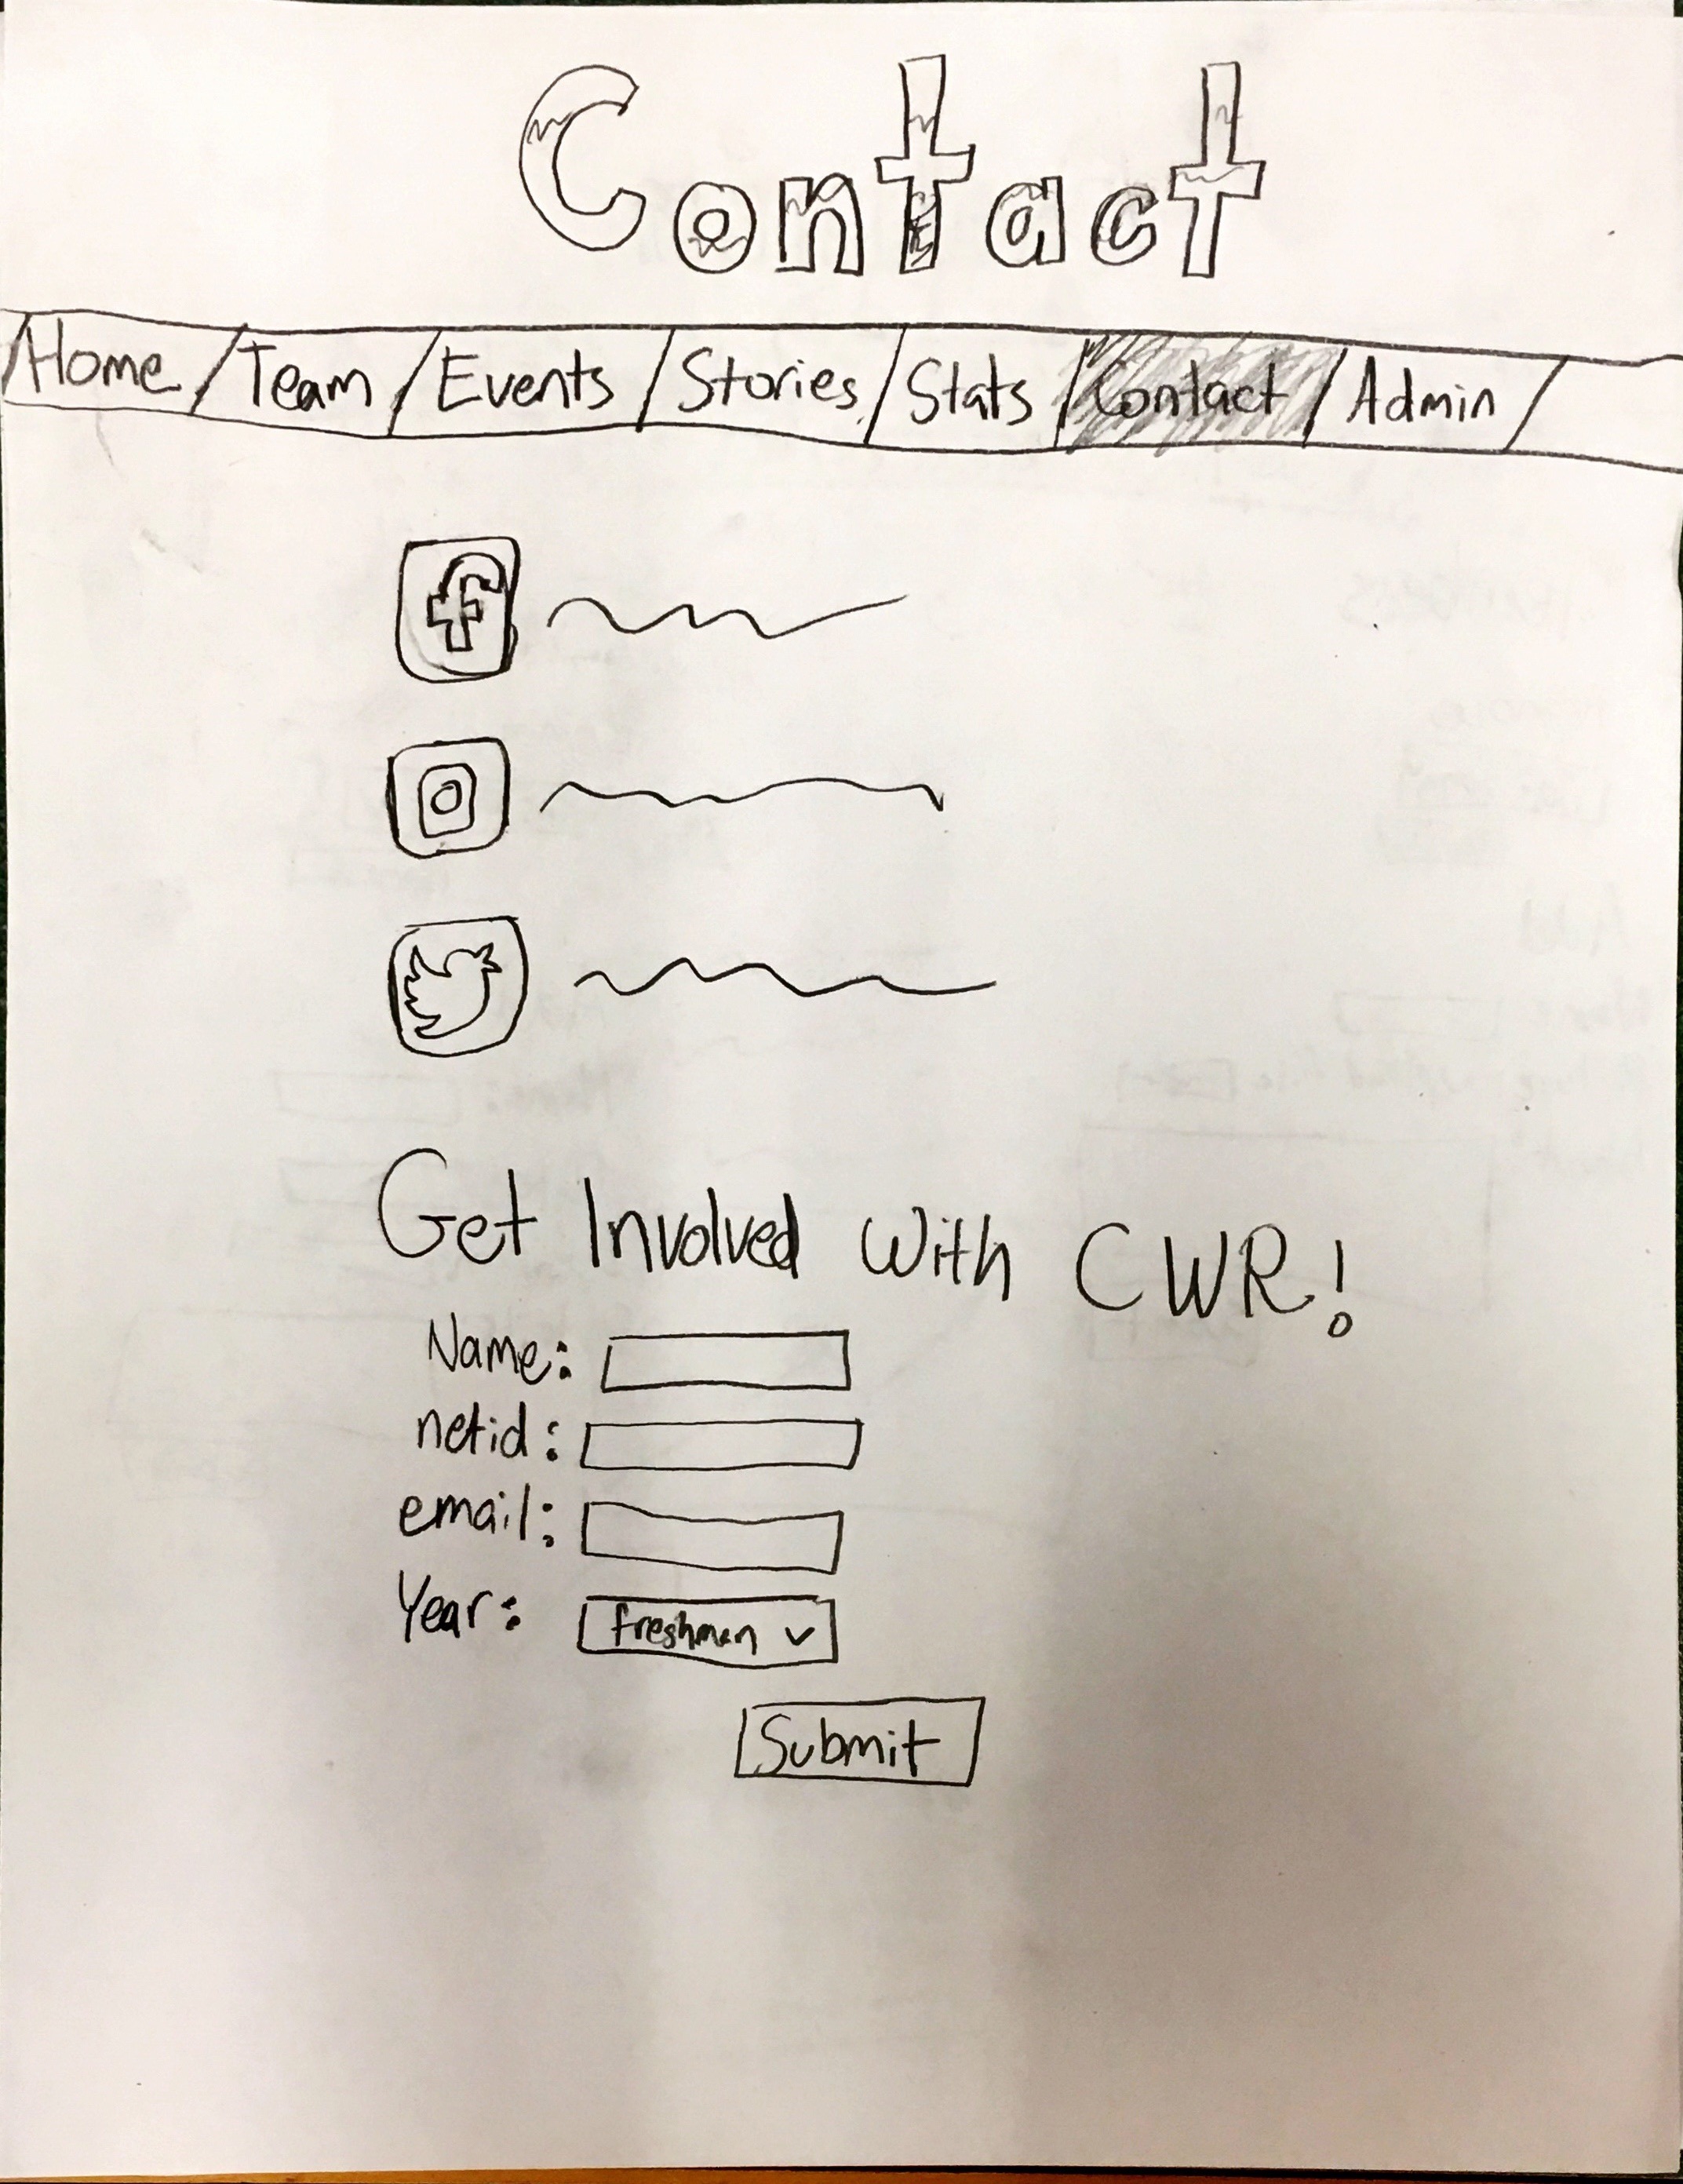 Contact
Home / Team / Events / Stories / Stats / Contact / Admin /
f
Get Involved With CWR!
Name:
netid:
email:
Year: freshman
Submit